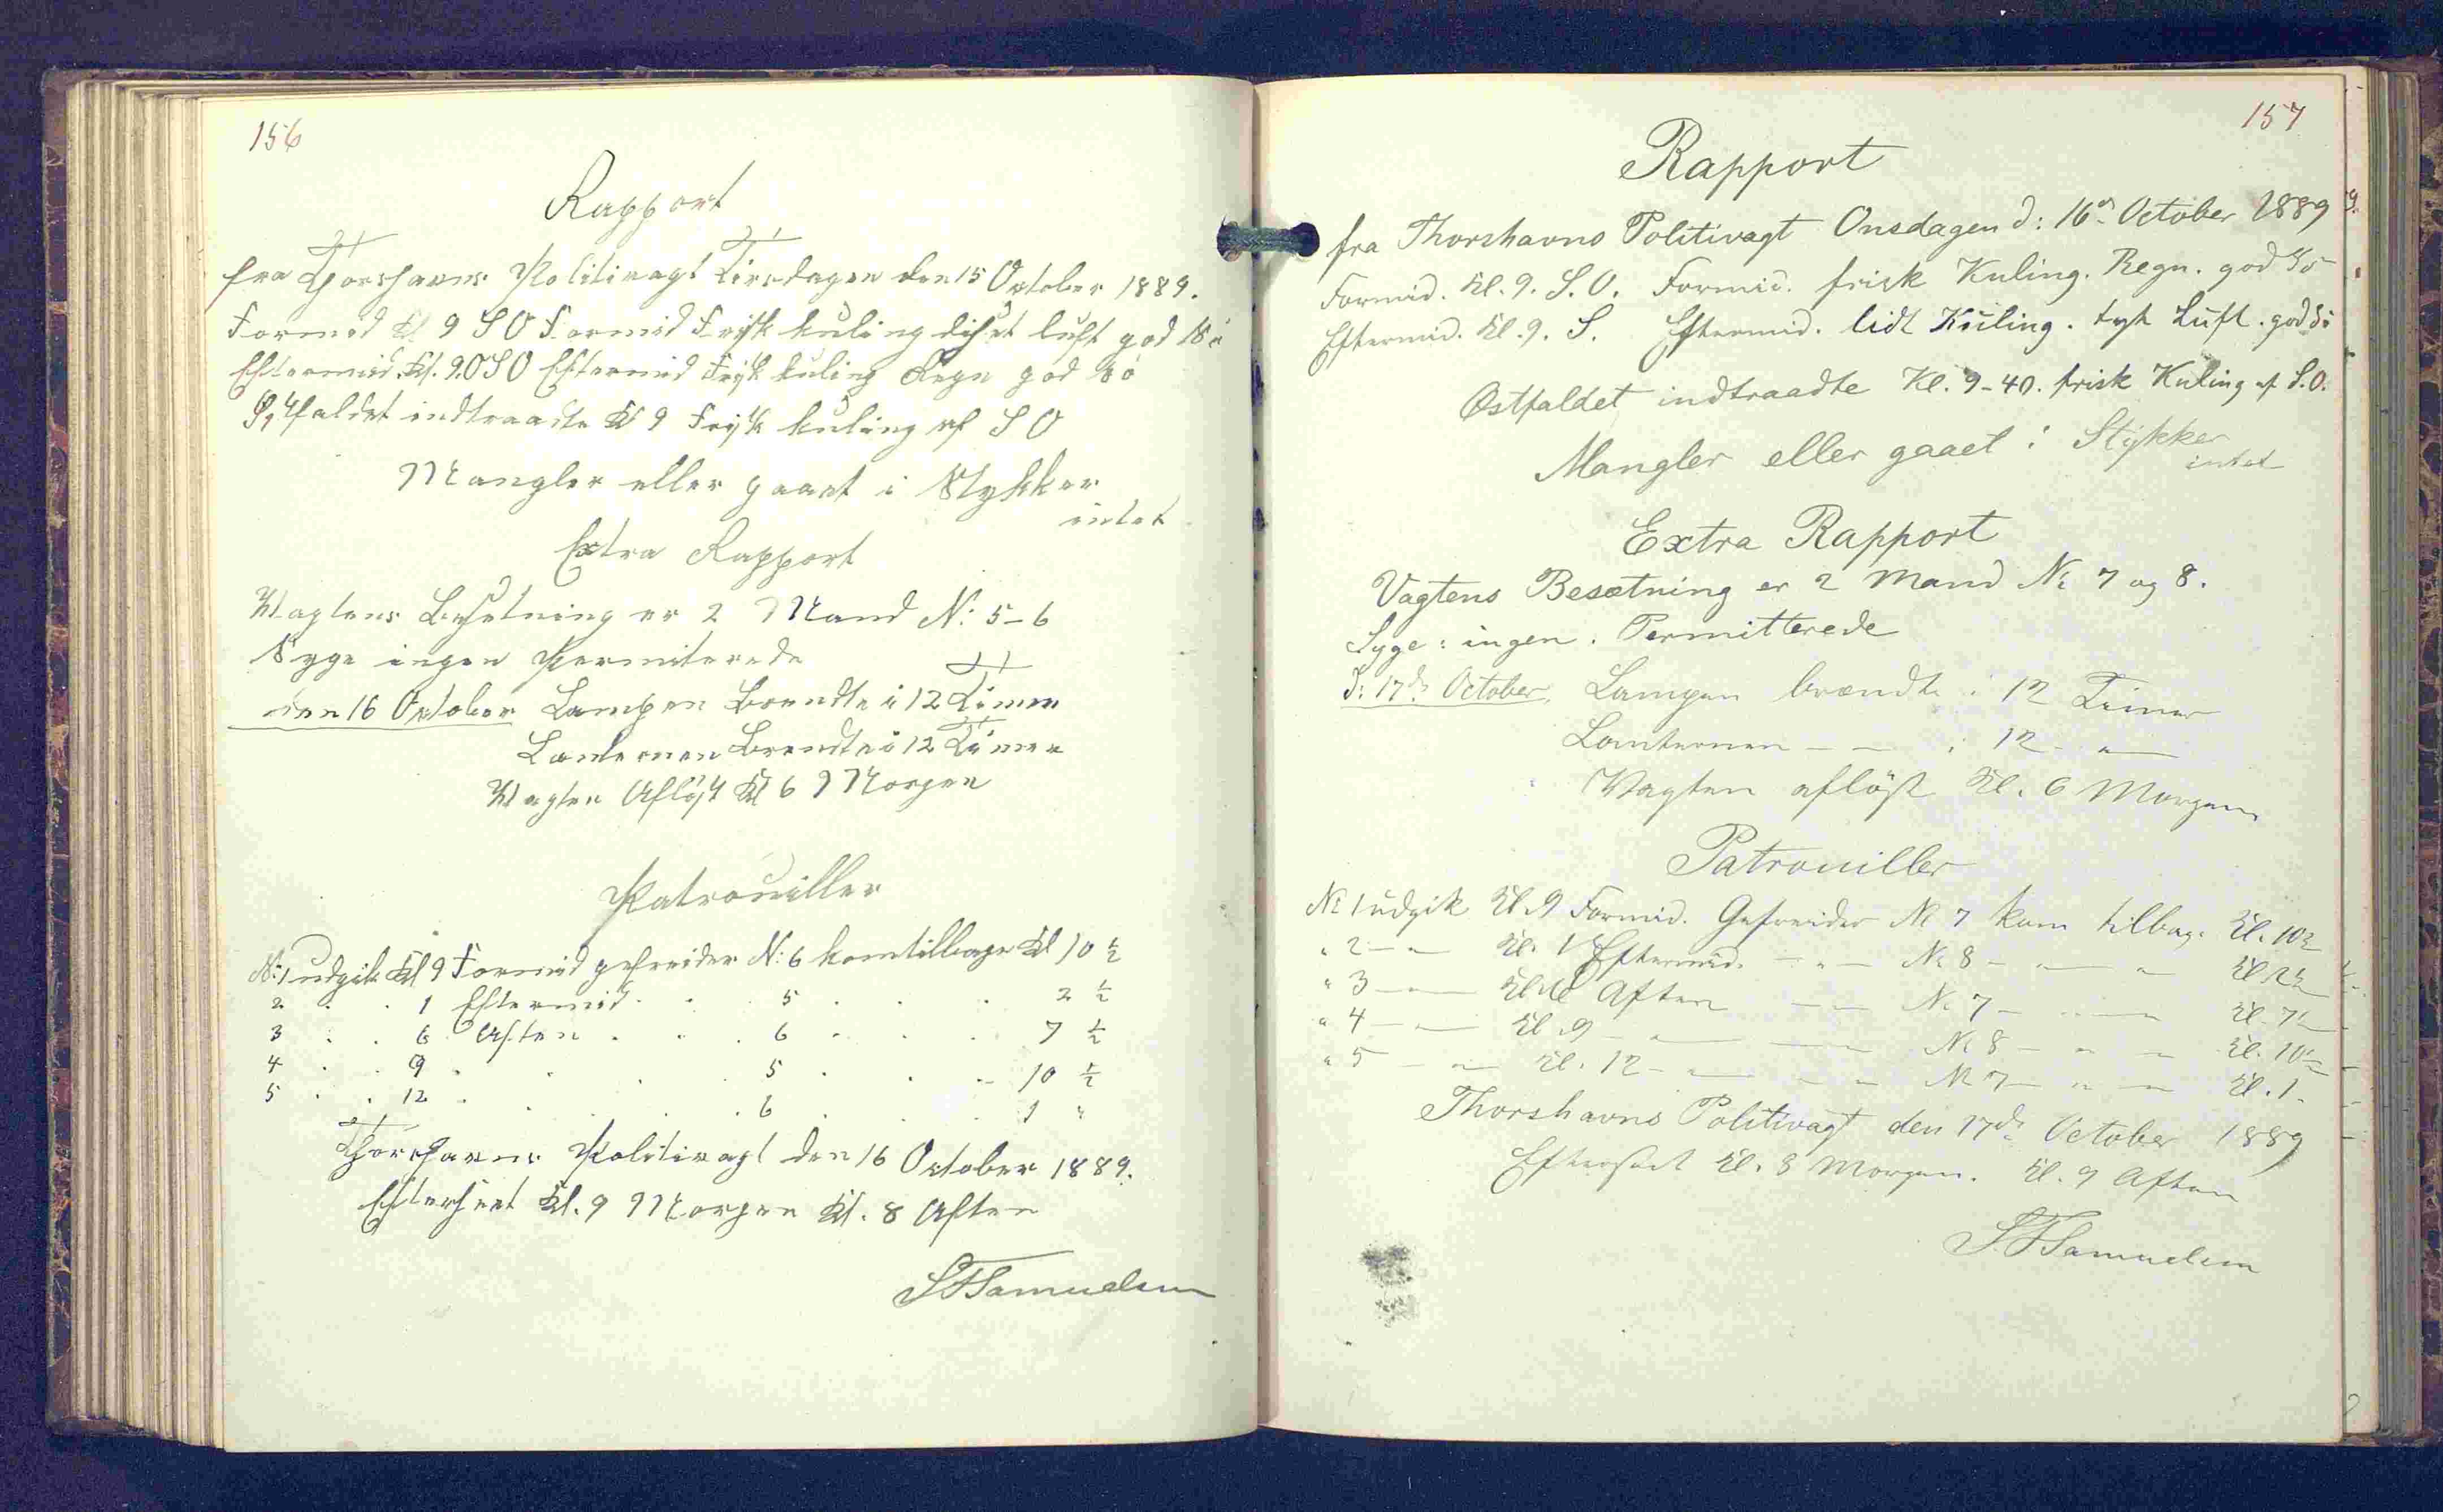 156
Rapport
fra Thorshavns Politivagt Tirsdagen den 15 October 1889.
Formd Kl 9 SO Formid Frisk kuling diset luft god Sö
Eftermid. Kl. 9. OSO Eftermid Frisk kuling Regn god Sö
Østfaldet indtraadte Kl 9 Frisk kuling af SO
Mangler eller gaaet i Stykker
intet
Extra Rapport
Vagtens Besetning er 2 Mand N: 5-6
Syge ingen Permiterede
den 16 October Lampen Brendte i 12 Timer
Lanternen Brendte i 12 Timer
Vagten Aflöst Kl 6 Morgen
Patrouiller
N: 1 udgik Kl 9 Formid gefreider N: 6 kom tilbage Kl 10 ½
2 . . 1 Eftermid . . 5 . . . 2 ½
3 . . 6 Aften . . . 6 . . . 7 ½
4 . . 9 . . . 5 . . . 10 ½
5 . . 12 . . . . 6 . . . 1 "
Thorshavns Politivagt den 16 October 1889.
Efterseet Kl. 9 Morgen Kl. 8 Aften
Samuelsen
157
Rapport
fra Thorshavns Politivagt Onsdagen d: 16de October 1889
Formid. Kl. 9. S.O. Formid. frisk Kuling. Regn. god Sö
Eftermid. Kl. 9. S. Eftermid. lidt Kuling. tyk Luft. god Sö
Østfaldet indtraadte Kl. 9-40. frisk Kuling af S.O.
Mangler eller gaaet i Stykker
intet
Extra Rapport
Vagtens Besætning er 2 Mand No 7 og 8.
Syge: ingen. Permitterede
D: 17de October. Lampen brændte i 12 Timer
Lanternen — — i 12 — " —
Vagten aflöst Kl. 6 Morgen
Patrouiller
No 1 udgik Kl. 9 Formid. Gefreider No 7 kom tilbage Kl. 10½
" 2 — " — Kl. 1 Eftermid. — " — No 8 — " — " — Kl 2½
" 3 — " — Kl. 6 Aften — " — No 7 — " — " — Kl. 7½
" 4 — " — Kl. 9 — " — — " — No 8 — " — " — Kl. 10½
" 5 — " — Kl. 12 — " — — " — No 7 — " — " — Kl. 1.
Thorshavns Politivagt den 17de October 1889
Efterseet Kl. 8 Morgen. Kl. 9 Aften
Samuelsen